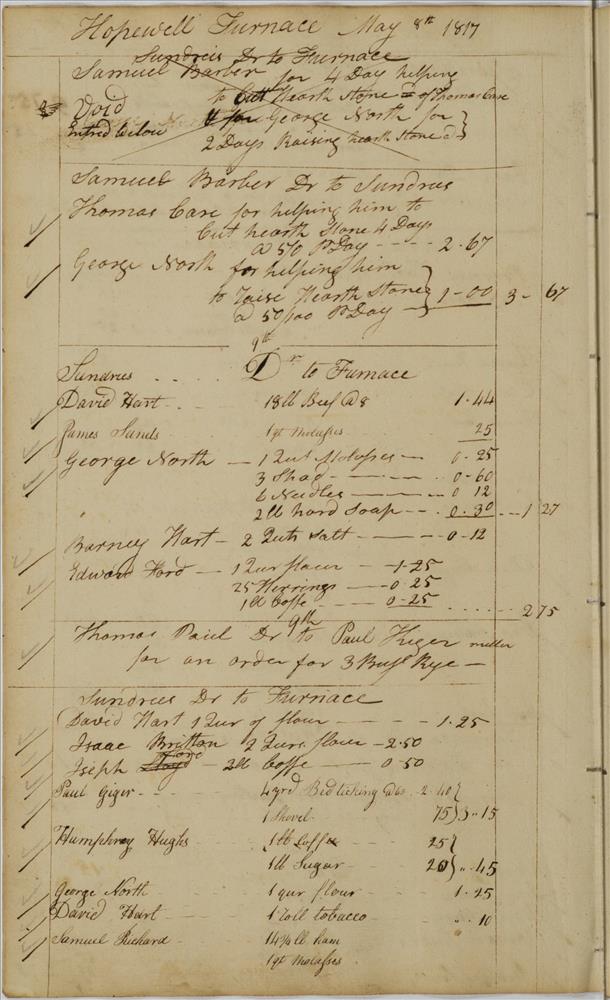 Hopewell Furnace May 8th 1817
Sundries Dr to Furnace
Samuel Barber for 4 Day helping
to Cut Hearth Stone of Thomas Care
Void
George North for
Entred below
2 Days Raising hearth Stone
Samuel Barber Dr to Sundries
Thomas Care for helping him to
Cut hearth Stone 4 Days
@ 50 P Day - - - - 2.67
George North for helping him
to raise Hearth Stone 1-00 3-67
@ 50/100 P Day
9th
Sundries . . . . Dr to Furnace
David Hart - - 18 lb Beef @ 8 1.44
James Sands 1 qt Molasses 25
George North — 1 Qut Molasses — 0-25
3 Shad — - — 0-60
6 Needles — — — 0 12
2 lb hard Soap - - - 0.30 - - 1 27
Barney Hart - 2 Quts Salt — — — 0-12
Edward Ford — 1 Qur flour — 1-25
25 Herrings — 0-25
1 lb Coffe — — 0-25 . . . . . . 275
9th
Thomas Paul Dr to Paul Kiger miller
for an order for 3 Bush Rye —
Sundries Dr to Furnace
David Hart 1 Qur of flour — — — - 1.25
Isaac Britton 2 Qurs. flour — 2.50
Joseph — 2 lb Coffe — 0 50
Paul Giger - - - 4 yrd Bedticking @ 60 . 2.40
1 Shovel 75 3..15
Humphrey Hughs 1 lb Coffee 25
1 lb Sugar 20 ". 45
George North 1 qur flour 1.25
David Hart - - 1 roll tobacco " . 10
Samuel Richard - 14¾ lb ham "
1 qt Molasses